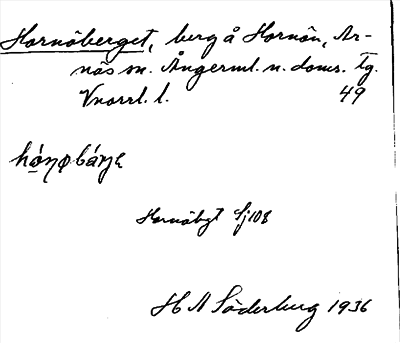 Hornöberget, berg å Hornön, Ar-
näs sn. Ångerml. n. doms. Tg.
Vnorrl. l. 49
Hornöbgt Sj108
H A Söderberg 1936